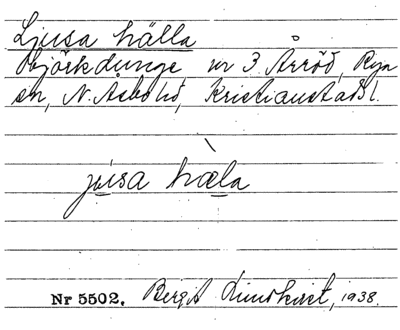 Ljusa hälla
björkdunge, nr 3 Årröd, Rya
sn, N. Åsbo hd, Kristianstads l.
jusa hæla
Nr 5502. Bergit Lindkvist, 1938.